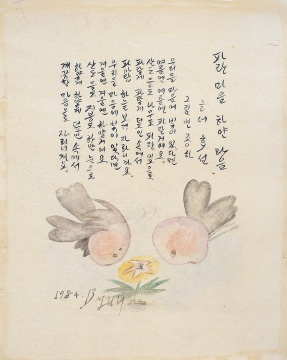 파란 마음 하얀 마음
글 어효선
그림 변종하
우리들 마음에 빛이 있다면
여름엔 여름엔 파랄거예요
산도 들도 나무도 파란 잎으로
파랗게 파랗게 덮인 속에서
파아란 하늘 보고 자라니까요
우리들 마음에 빛이 있다면
겨울엔 겨울엔 하얄거예요
산도 들도 지붕도 하얀 눈으로
하얗게 하얗게 덮인 속에서
깨끗한 마음으로 자라니까요
1984.